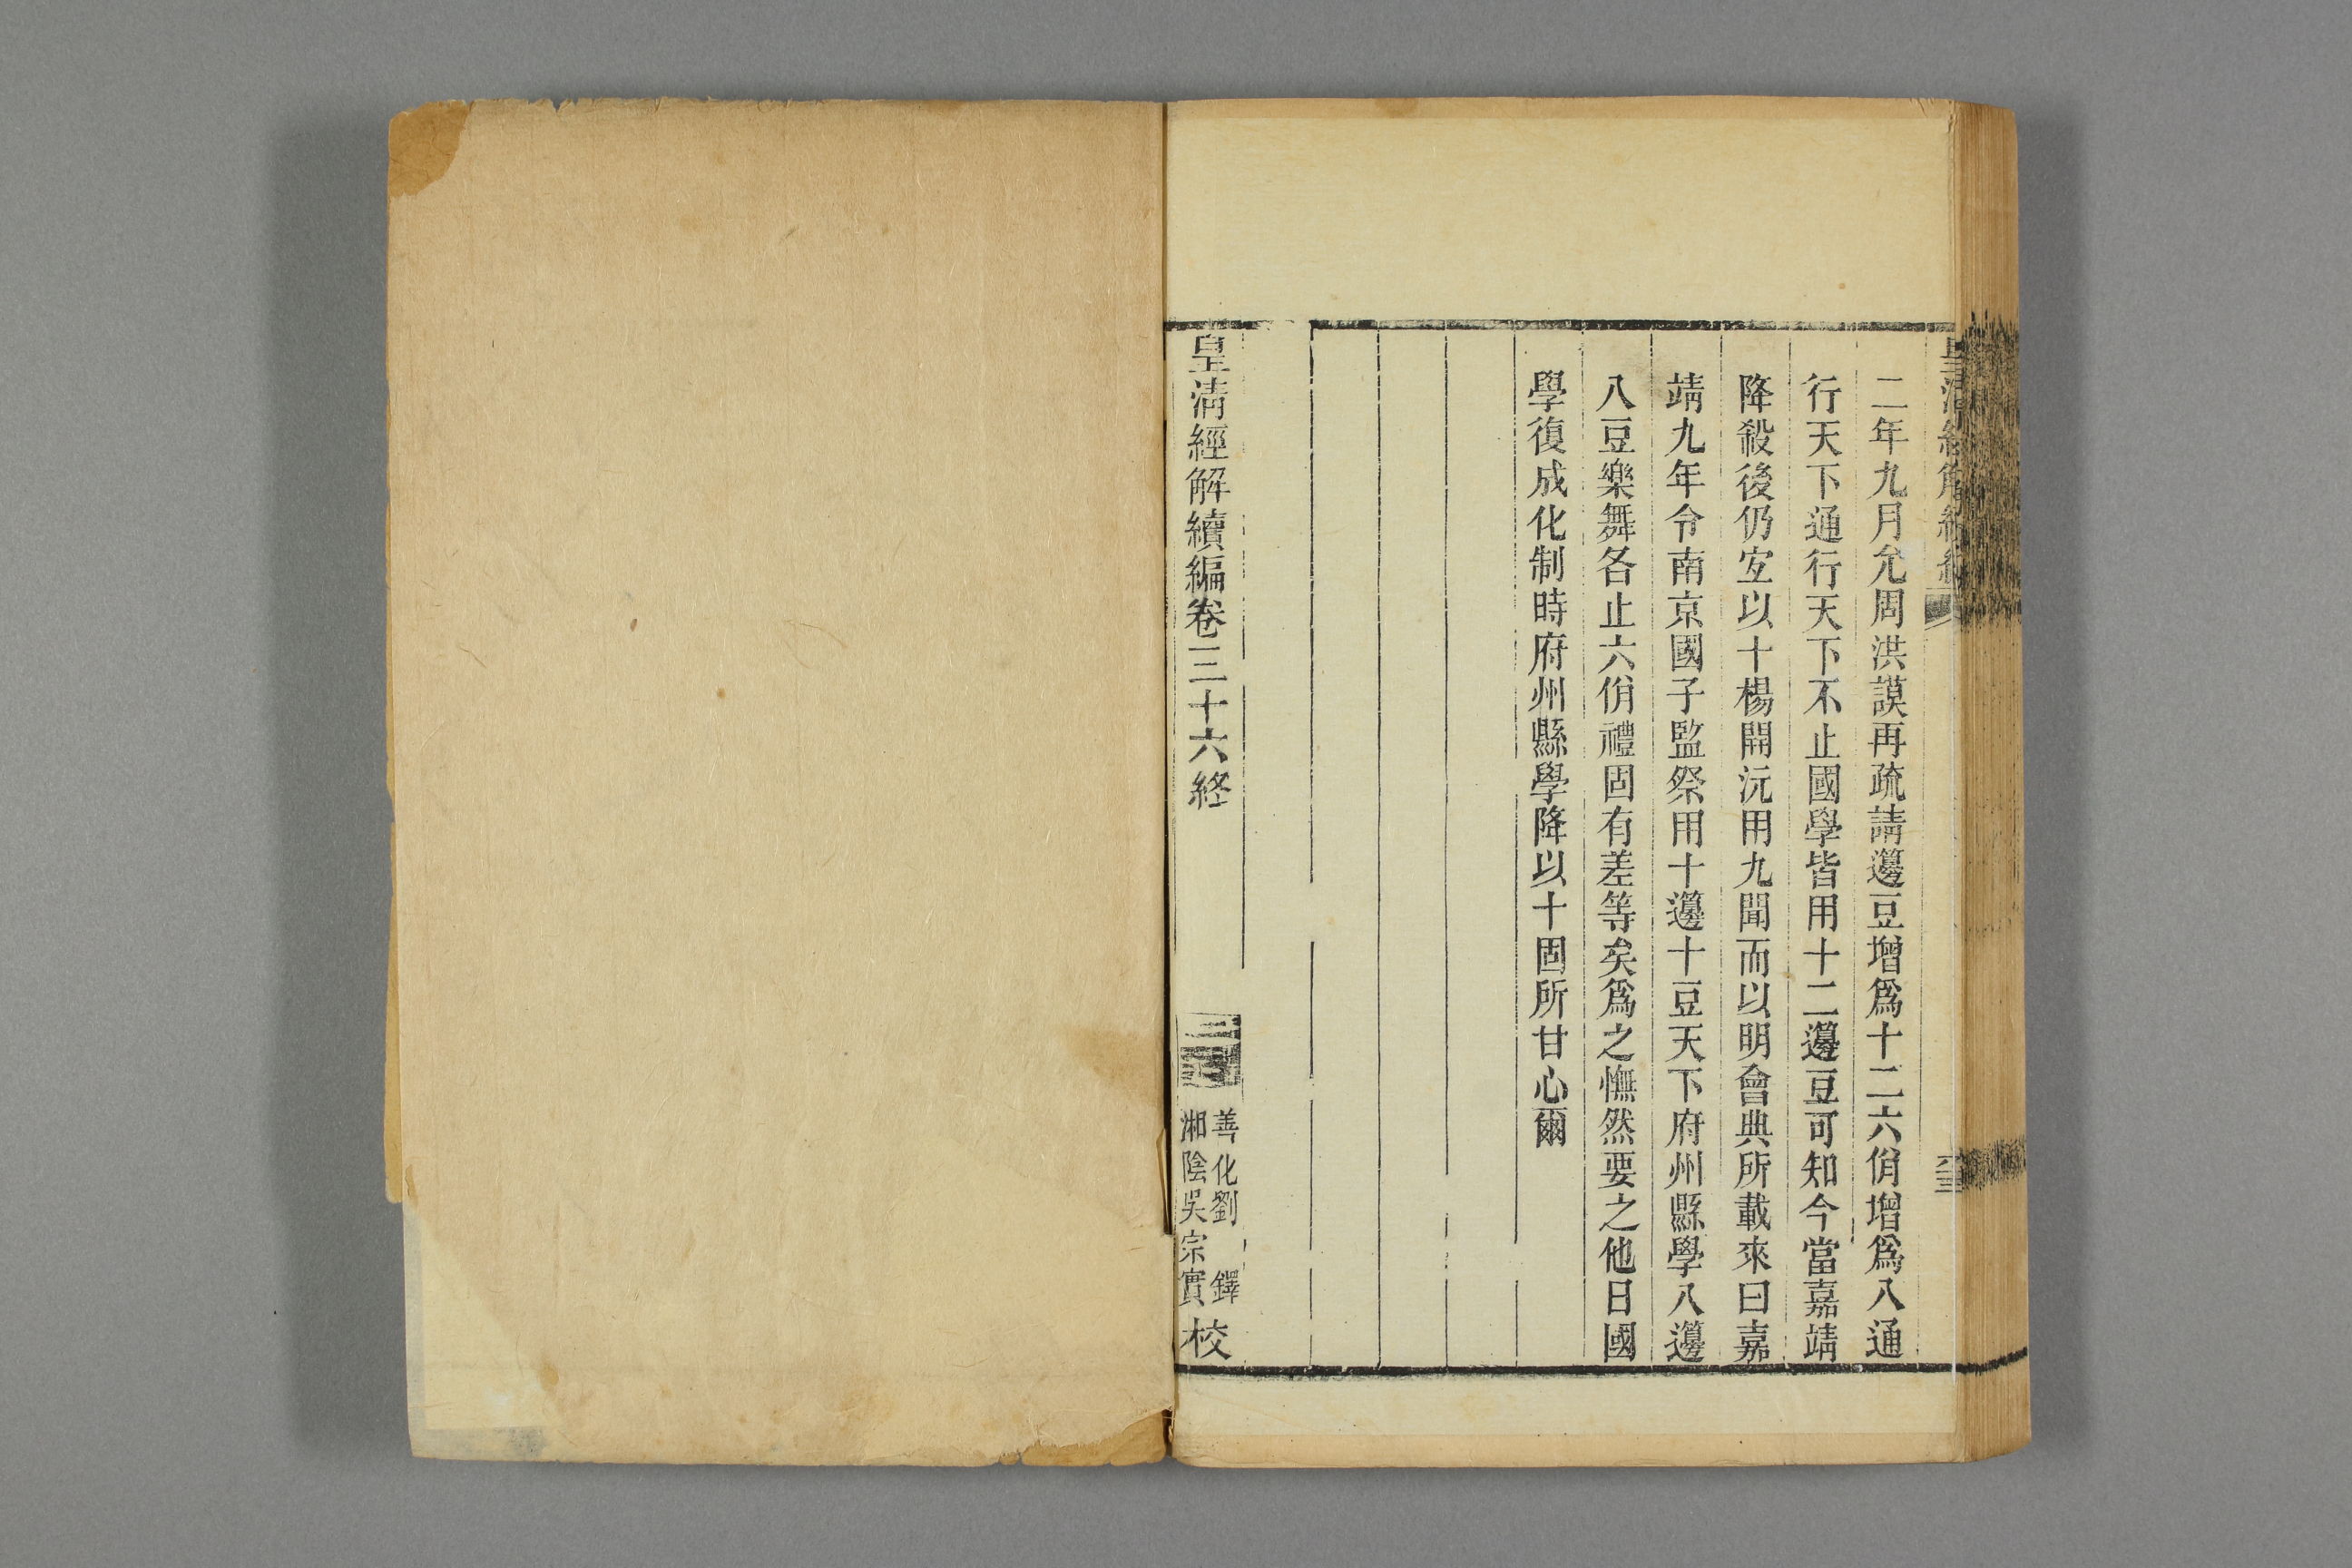 二年九月允周洪謨再疏請籩豆增爲十二六佾增爲八通
行天下通行天下不止國學皆用十二籩豆可知今當嘉靖
降殺後仍宐以十楊開沅用九聞而以明會典所載來曰嘉
靖九年令南京國子監祭用十籩十豆天下府州縣學八籩
八豆樂舞各止六佾禮固有差等矣爲之憮然要之他日國
學復成化制時府州縣學降以十固所甘心爾
皇清經解續編卷三十六終
善化劉鐸
湘陰吳宗實
校